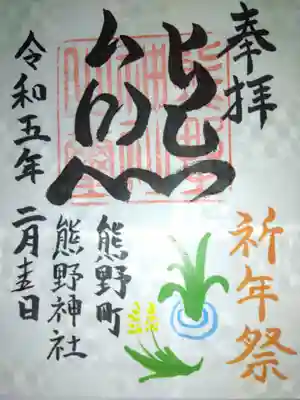 奉拝
祈年祭
熊
熊野町
熊野神社
令和五年 二月十五日